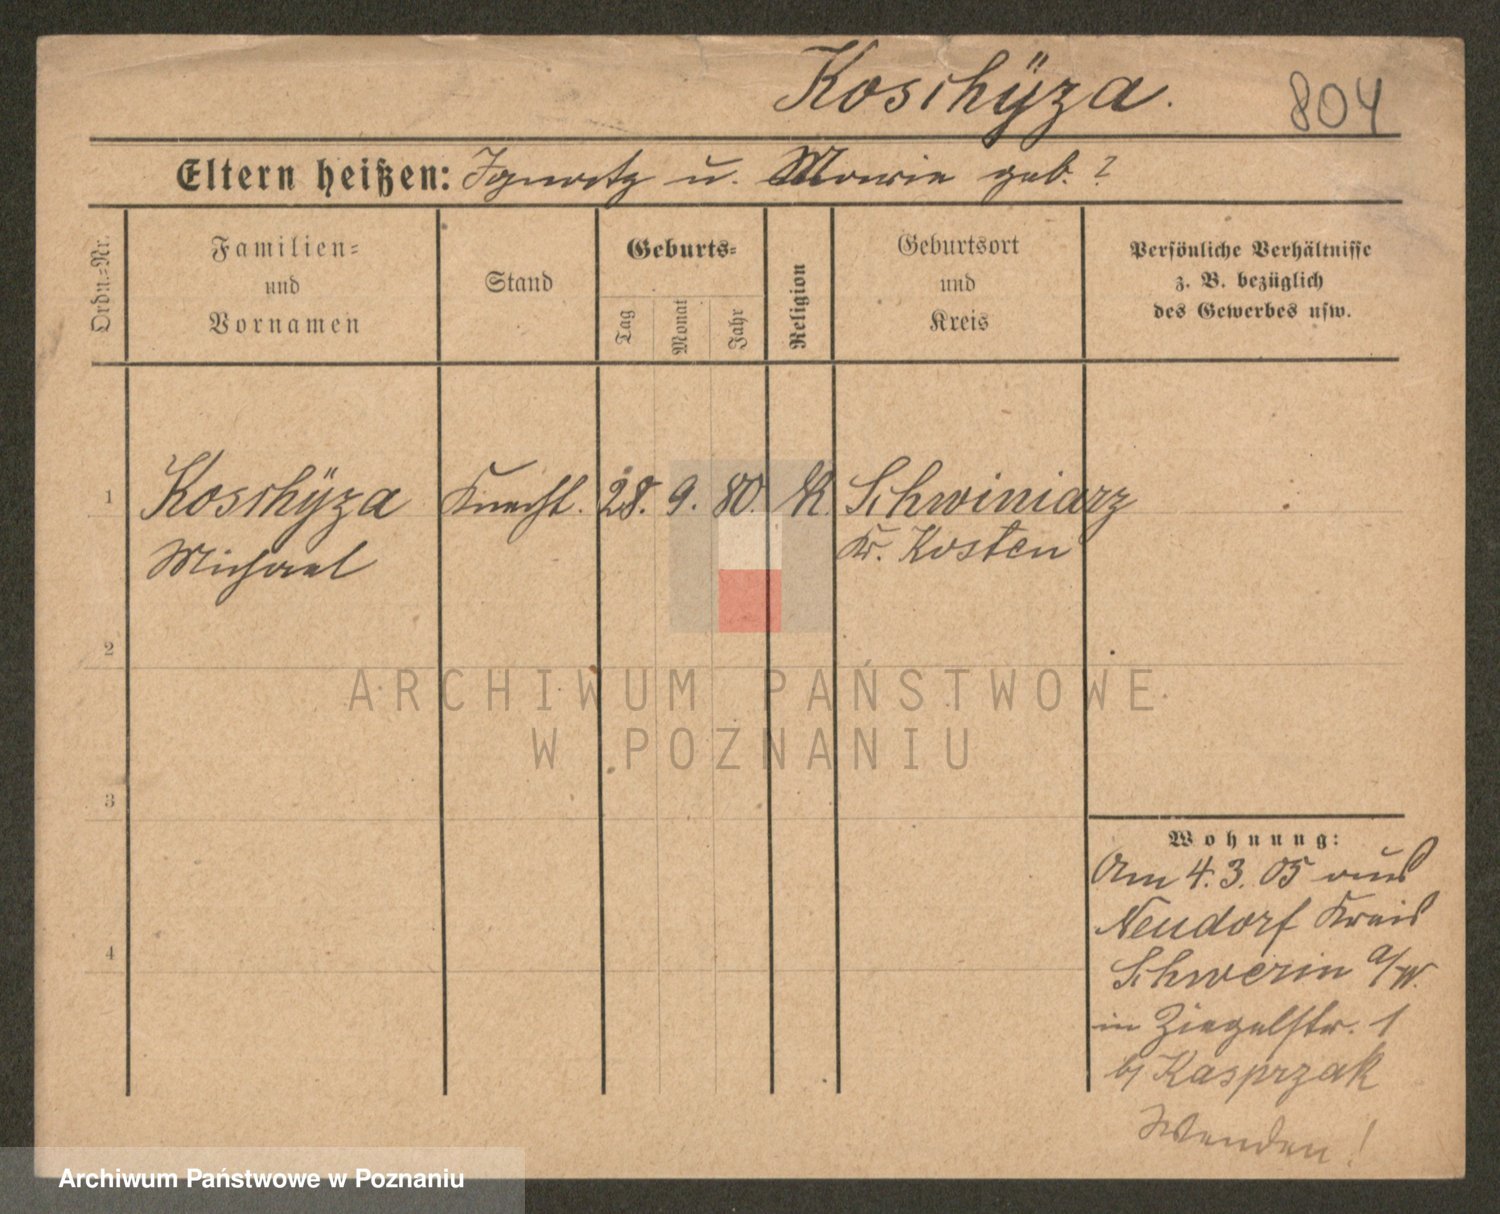 Koschÿza.
804
Eltern heißen: Ignatz u. Marie geb. ?
Ordn.=Nr.
Familien=
und
Vornamen
Stand
Geburts=
Tag
Monat
Jahr
Religion
Geburtsort
und
Kreis
Persönliche Verhältnisse
z. B. bezüglich
des Gewerbes usw.
1 Koschÿza Knecht. 28. 9. 80. K. Schwiniarz
Michael Kr. Kosten
2
ARCHIWUM PAŃSTWOWE
W POZNANIU
3
Wohnung:
Am 4. 3. 05 aus
Neudorf Kreis
4
Schwerin a/W.
in Ziegelstr. 1
bj Kasprzak
Wenden!
Archiwum Państwowe w Poznaniu